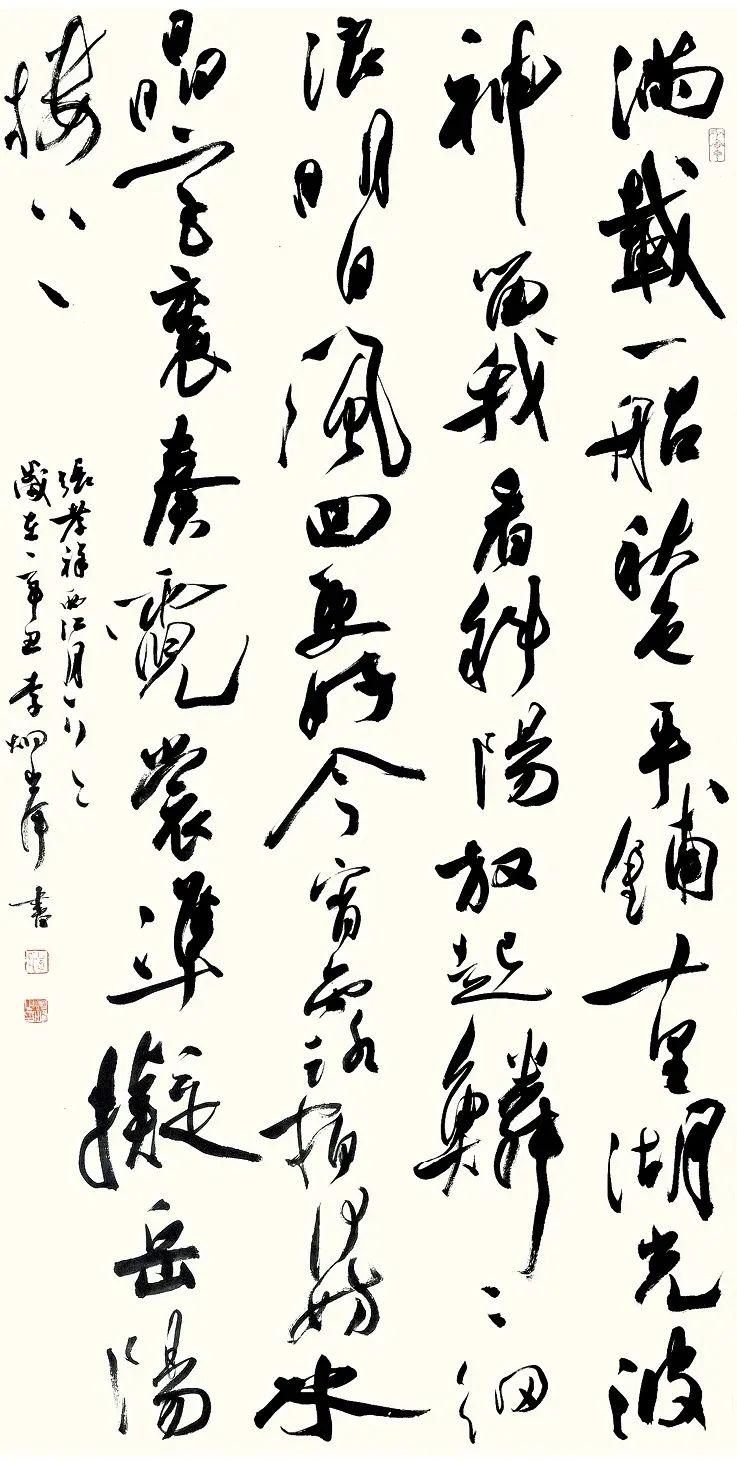 滿載一船秋色平鋪十里湖光波
神留我看斜陽放起鱗〻細
浪明日風回更好今宵露宿何妨水
晶宮裏奏霓裳準擬岳陽
樓上
張孝祥西江月
歲在辛丑李書